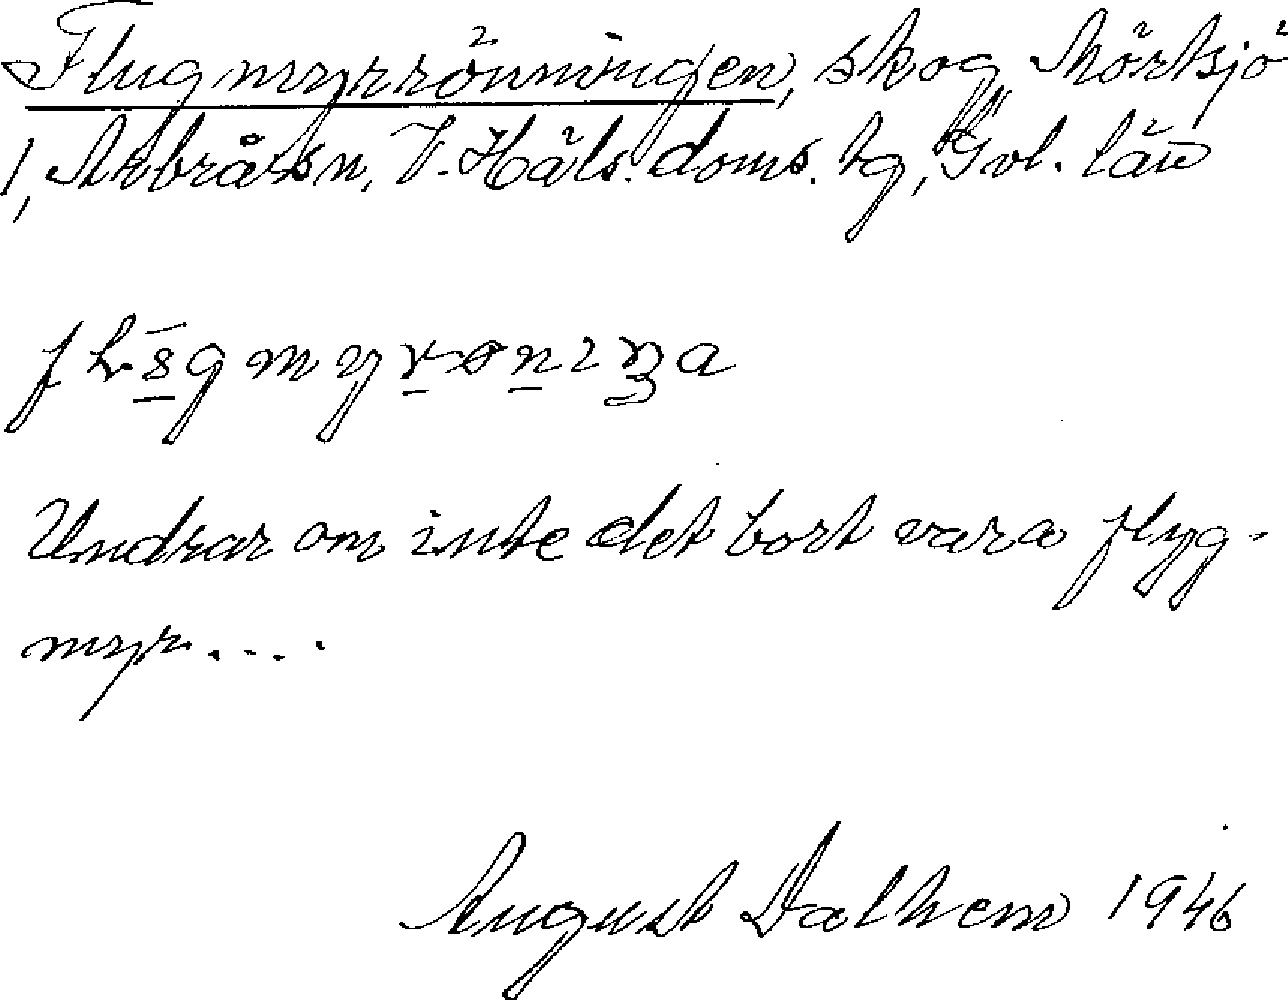 Flugmyrrönningen, skog, Mörtsjö
1, Arbrå sn, V. Häls. doms. tg, Gvl. län
Undrar om inte det bort vara flyg-
myr....
August Dalhem 1946